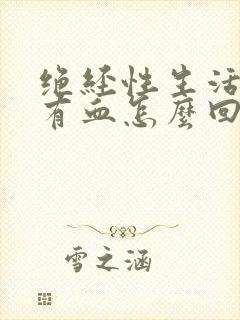 绝经性生活
有血怎麽回
雪之涵